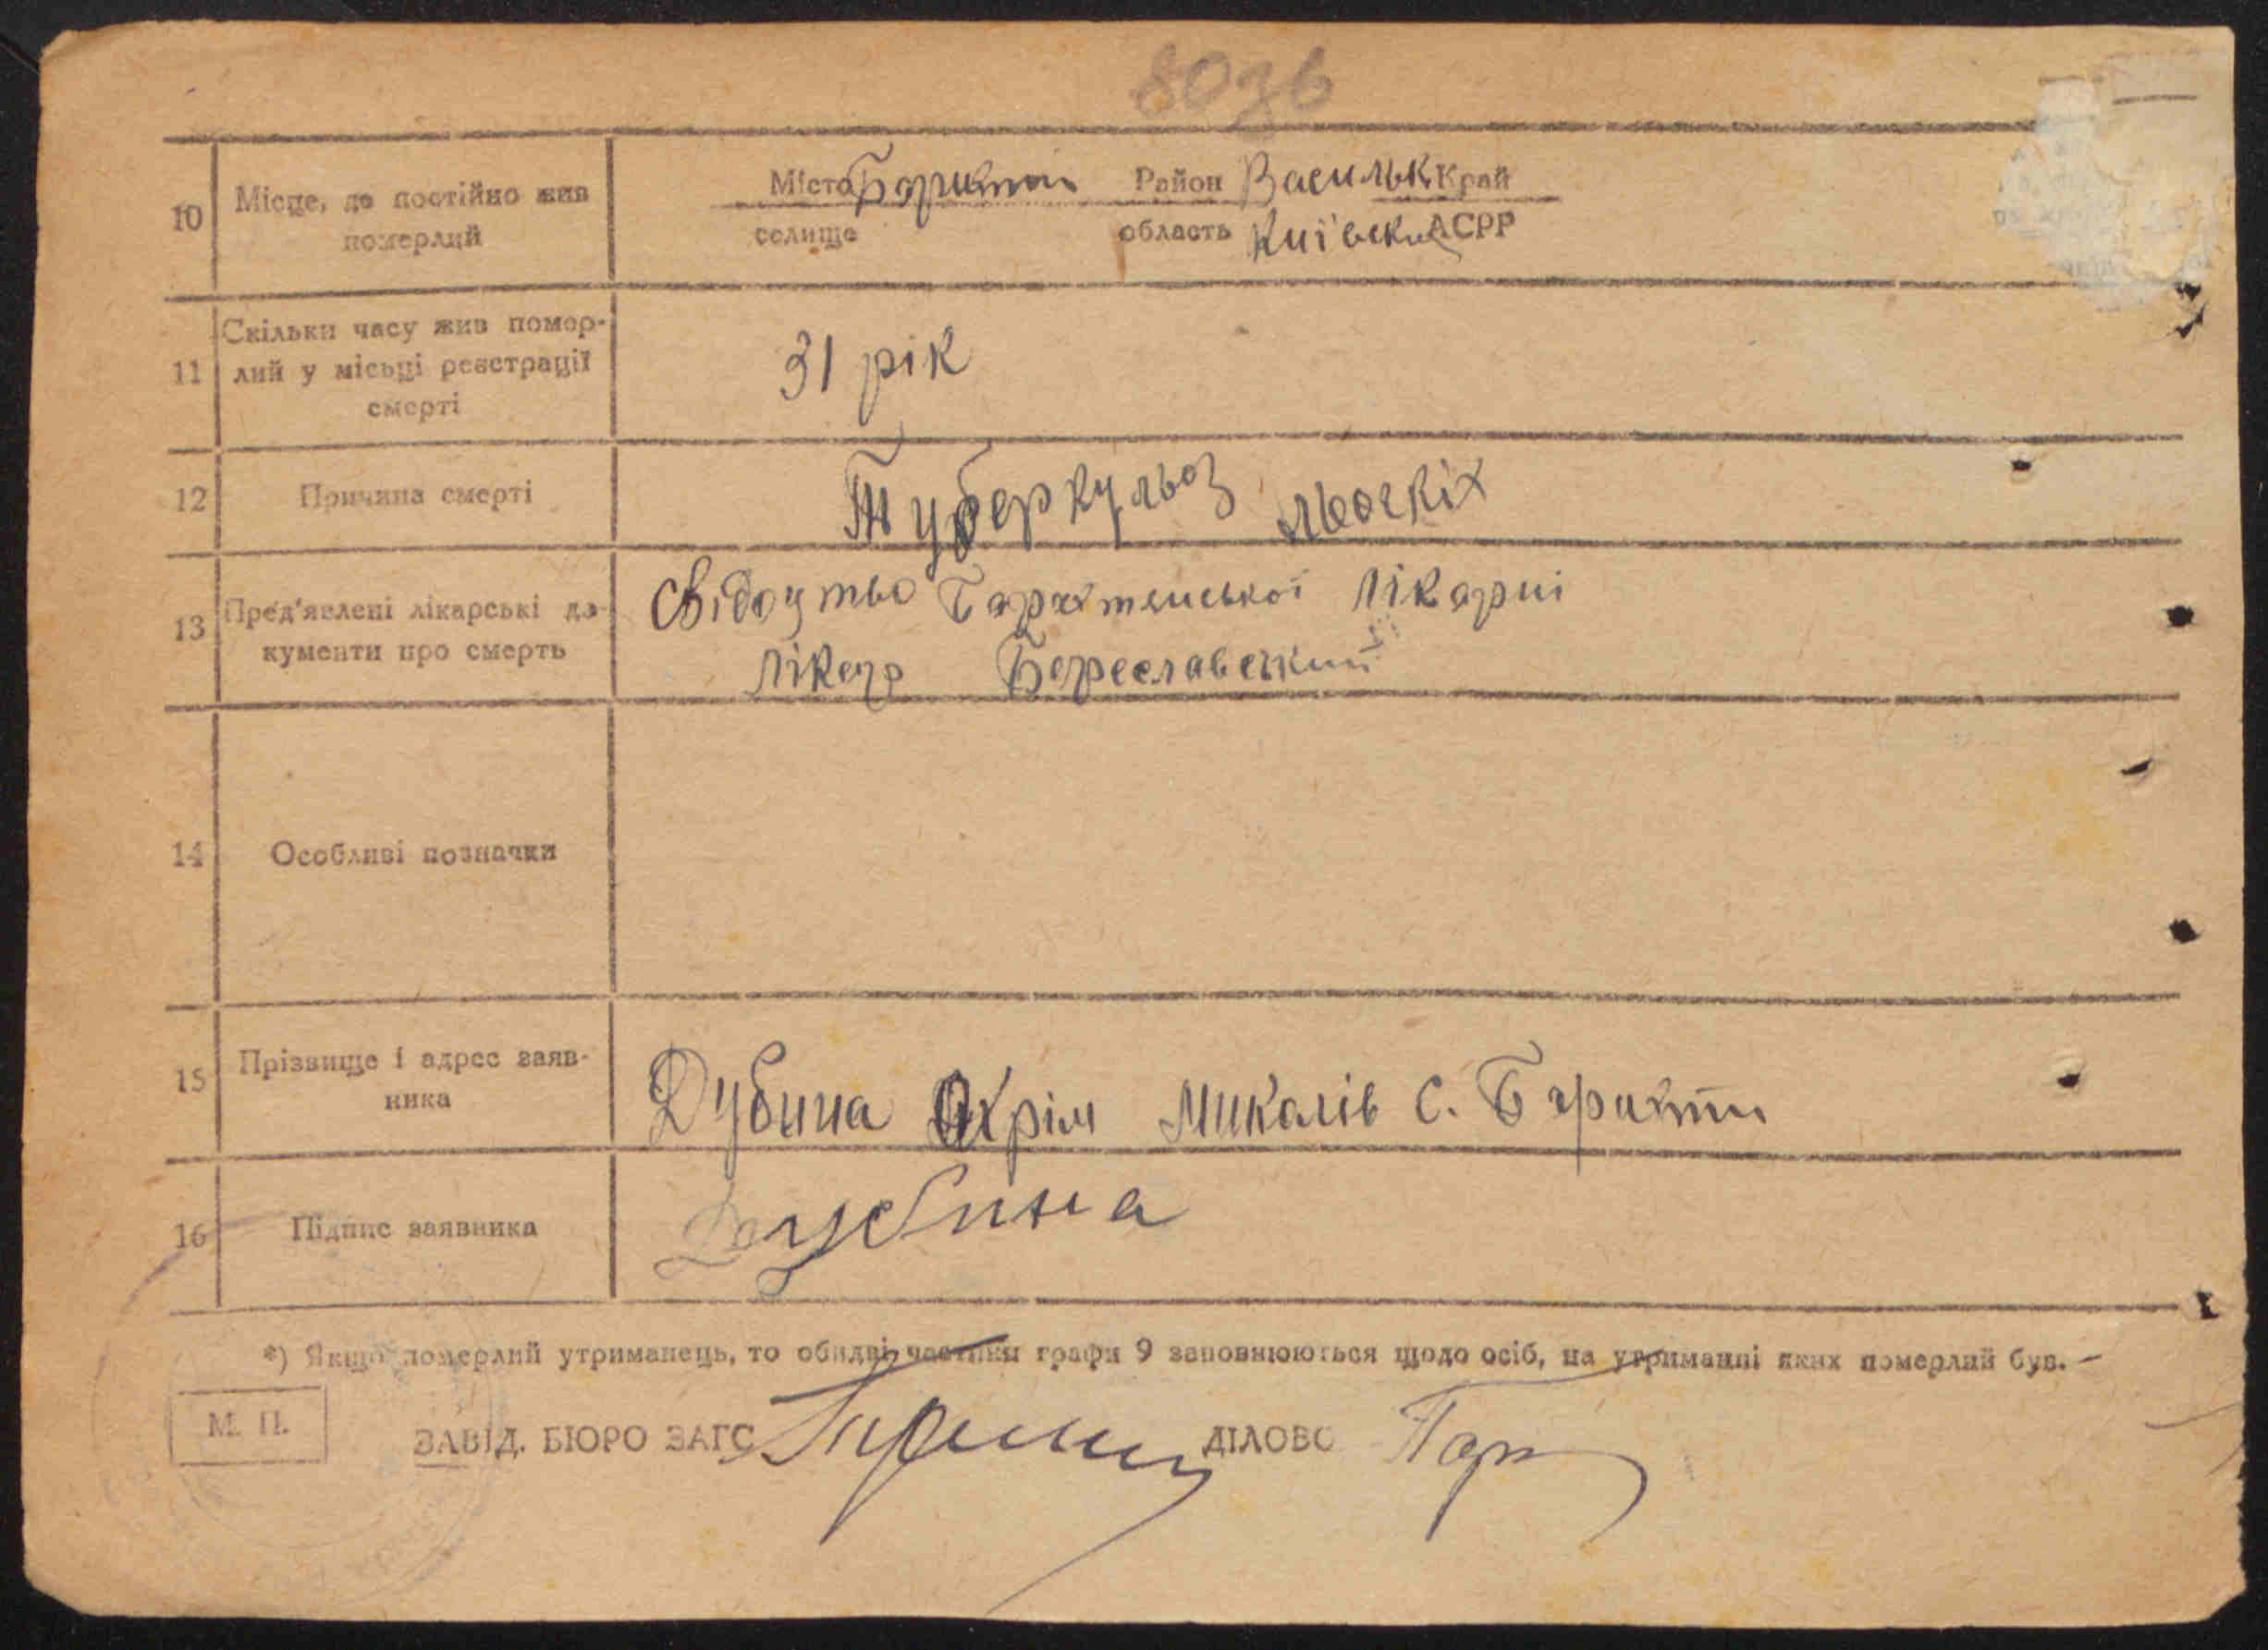 80зв
10 Місце, де постійно жив померлий
Місто Барахти Район Васильк. Край
селище область Київська АСРР
11 Скільки часу жив помер-
лий у місьці реєстрації
смерті
31 рік
12 Причина смерті
Туберкульоз льогкіх
13 Пред'явлені лікарські до-
кументи про смерть
Свідоцтво Барахтянської лікарні
лікар Береславський
14 Особливі позначки
15 Прізвище і адрес заяв-
ника
Дубина Охрім Миколів с. Барахти
16 Підпис заявника
Дубина
*) Якщо померлий утриманець, то обидві частини графи 9 заповнюються щодо осіб, на утриманні яких померлий був. —
М. П.
ЗАВІД. БЮРО ЗАГС ДІЛОВО